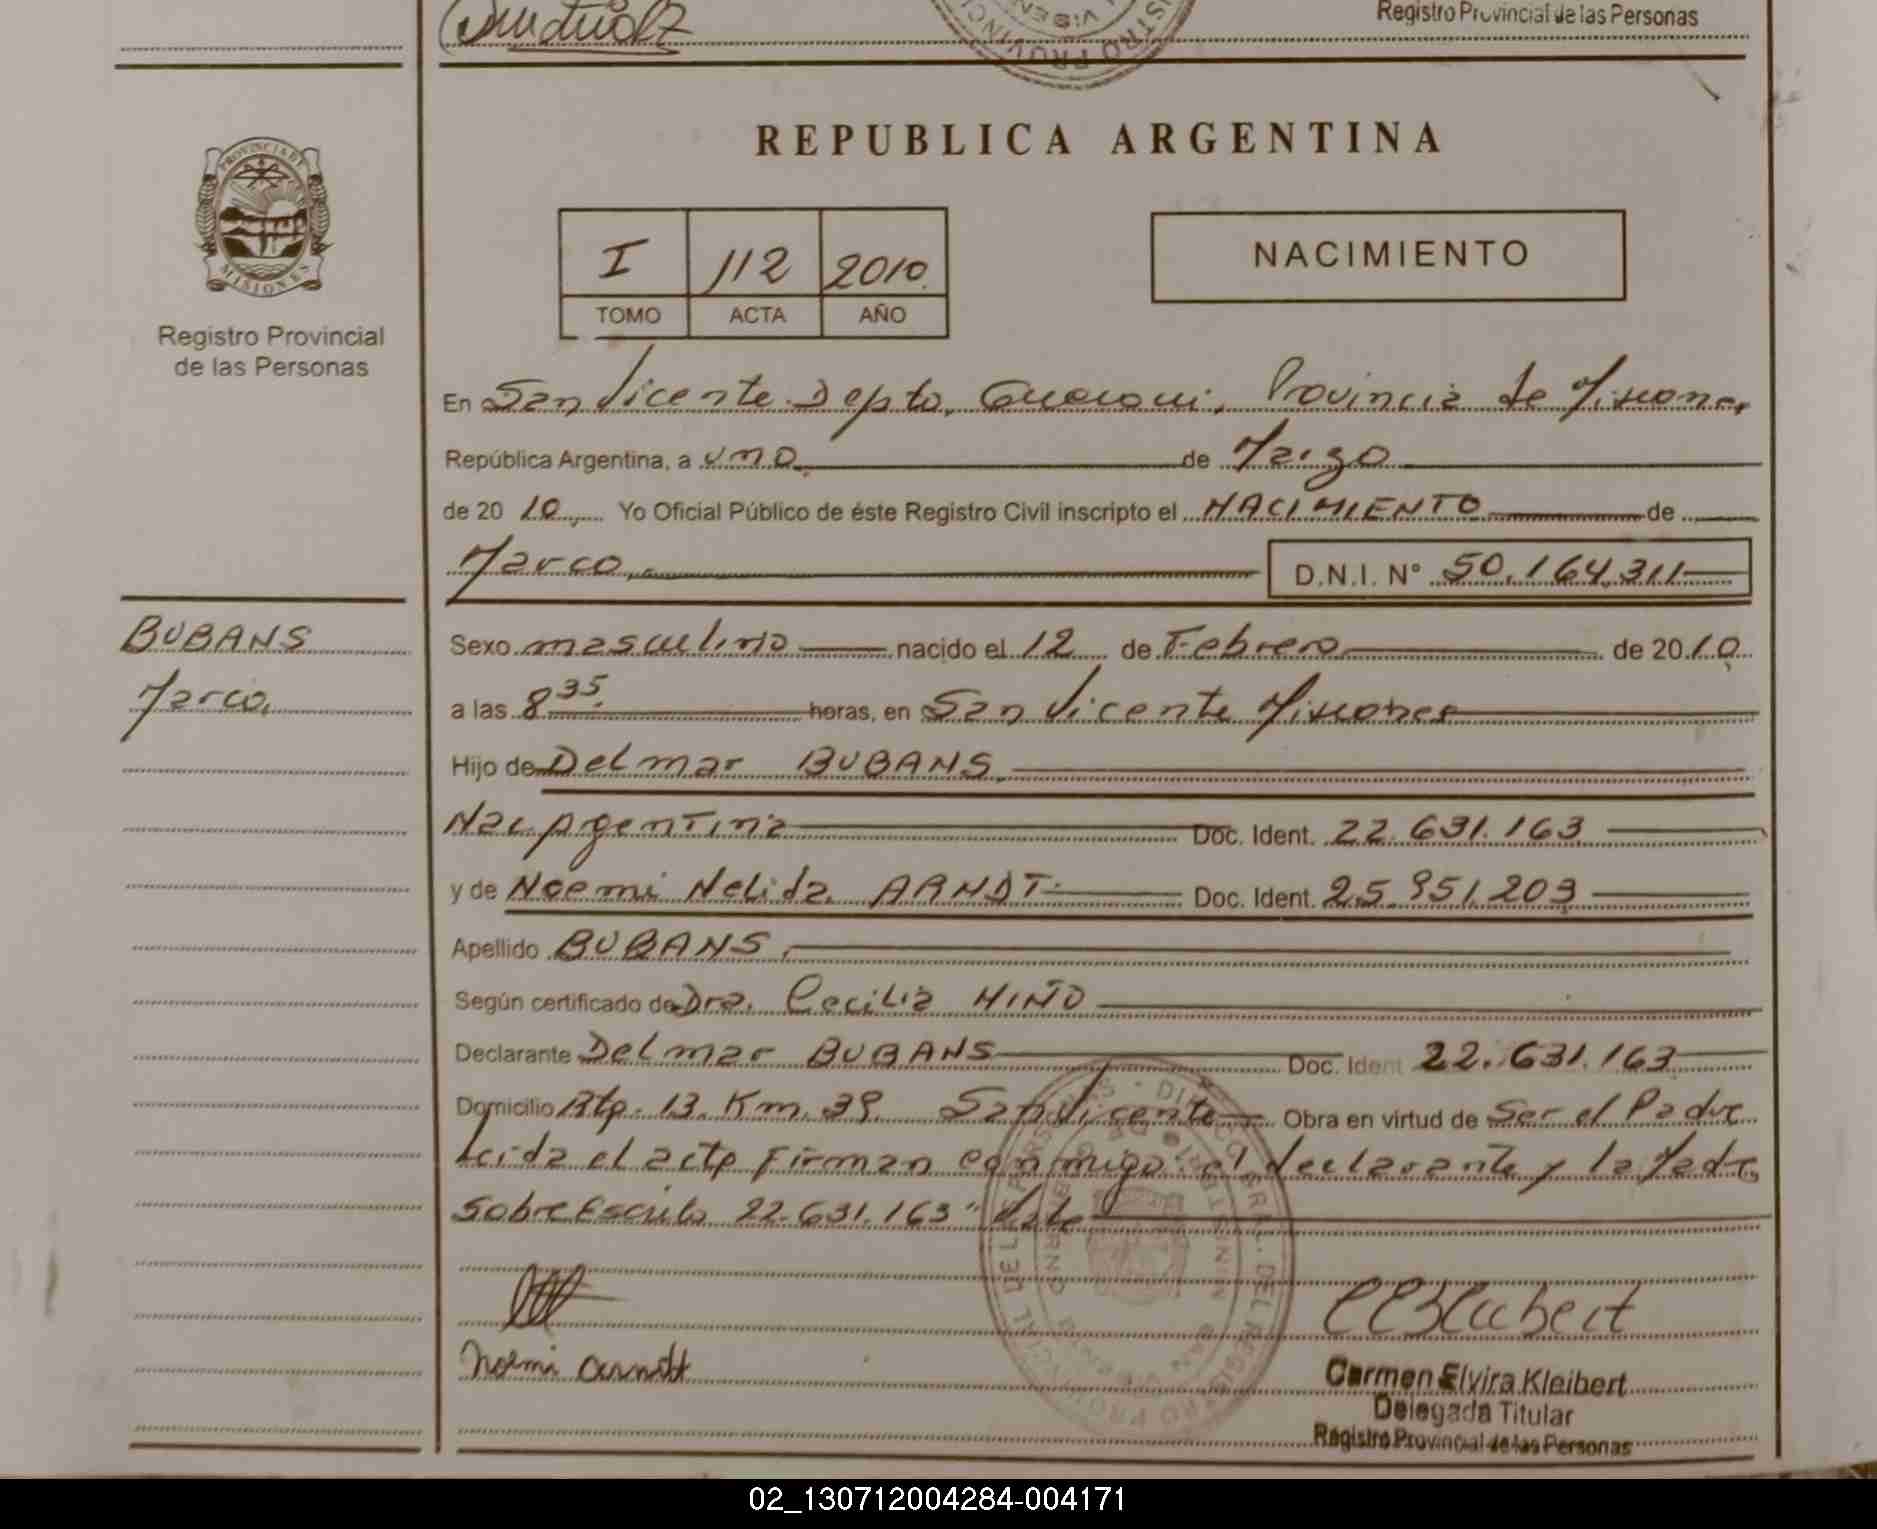 Registro Provincial de las Personas
REPUBLICA ARGENTINA
PROVINCIA DE MISIONES
Registro Provincial
de las Personas
I 112 2010
TOMO ACTA AÑO
NACIMIENTO
En San Vicente Depto, Guarani, Provincia de Misiones
República Argentina, a uno de Marzo
de 20 10, Yo Oficial Público de éste Registro Civil inscripto el NACIMIENTO de
Marco, D.N.I. N° 50.164.311
BUBANS
Marco,
Sexo masculino nacido el 12 de Febrero de 20 10
a las 8 35 horas, en San Vicente Misiones
Hijo de Delmar BUBANS
Nac. Agentina Doc. Ident. 22.631.163
y de Noemi Nelida ARNDT Doc. Ident. 25.951.203
Apellido BUBANS,
Según certificado de Dra. Cecilia MIÑO
Declarante Delmar BUBANS Doc. Ident 22.631.163
Domicilio Rtp. 13. Km. 39. San Vicente Obra en virtud de Ser el Padre
Leida el acta Firman conmigo el declarante y la Madre
Sobre Escrito 22.631.163" Vale
Noemi Arndt
Carmen Elvira Kleibert
Delegada Titular
Registro Provincial de las Personas
02_130712004284-004171